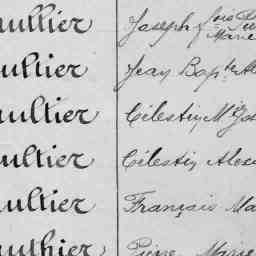 aullier Joseph
Marie
aultier Jean Bapte Al
aultier Célestin M Jos
aultier Célestin Alex
aultier François Ma
authier Pierre Marie